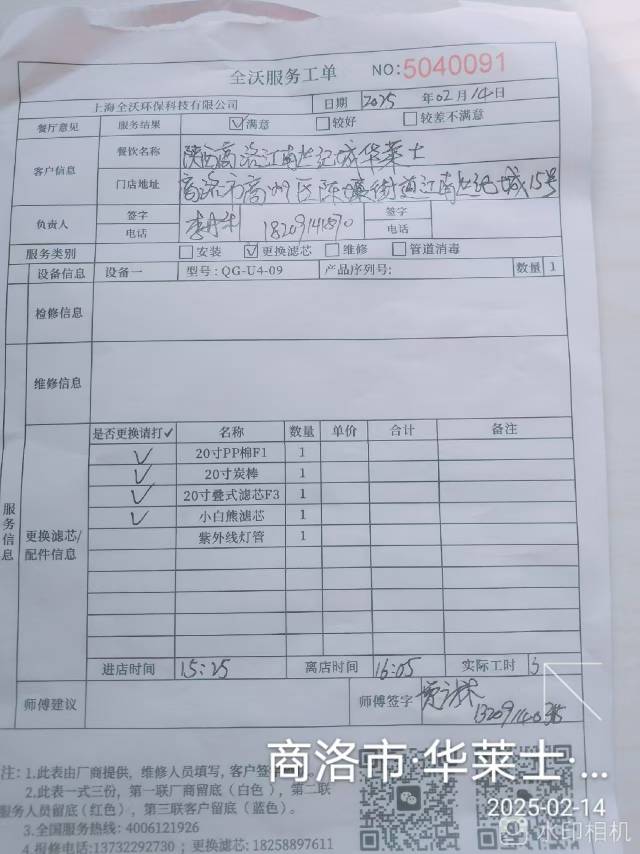 全沃服务工单 NO:5040091
上海全沃环保科技有限公司 日期 2025年02月14日
餐厅意见 服务结果 ☑满意 □较好 □较差不满意
客户信息 餐饮名称 陕西商洛江南世纪城华莱士
门店地址 商洛市商州区陈塬街道江南世纪城15号
负责人 签字 签字
电话 电话
服务类别 □安装 ☑更换滤芯 □维修 □管道消毒
设备信息 设备一 型号:QG-U4-09 产品序列号: 数量 1
检修信息
维修信息
服务信息
更换滤芯/配件信息
是否更换请打✓ 名称 数量 单价 合计 备注
✓ 20寸PP棉F1 1
✓ 20寸炭棒 1
✓ 20寸叠式滤芯F3 1
✓ 小白熊滤芯 1
紫外线灯管 1
进店时间 15:25 离店时间 16:05 实际工时
师傅建议 师傅签字
注: 1.此表由厂商提供, 维修人员填写, 客户签
2.此表一式三份, 第一联厂商留底(白色), 第二联
服务人员留底(红色), 第三联客户留底(蓝色)。
3.全国服务热线: 4006121926
4.报修电话:13732292730; 更换滤芯: 18258897611
商洛市·华莱士·...
2025-02-14
水印相机